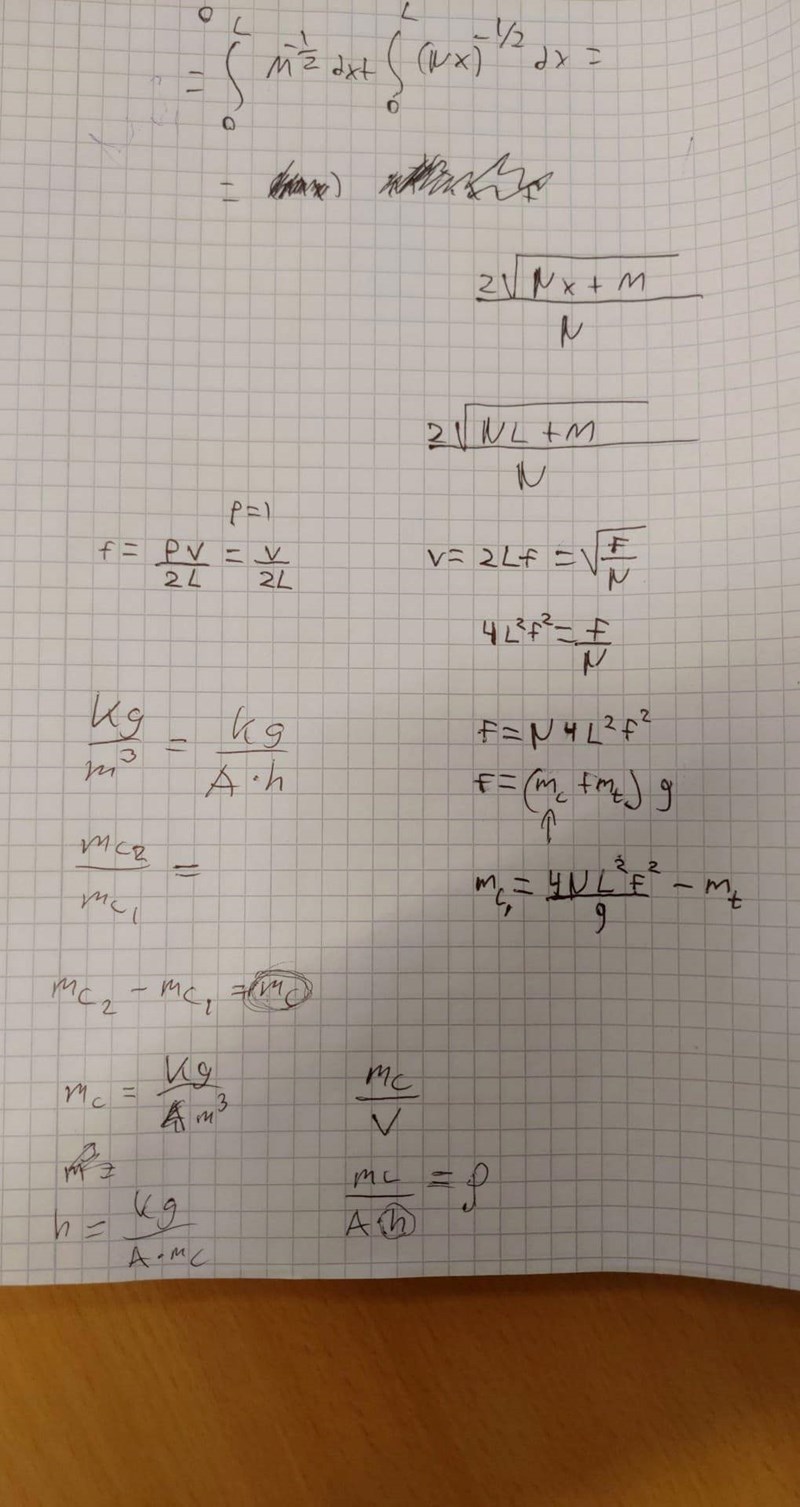 0 L L
= ∫ M^-1/2 dx + ∫ (Nx)^-1/2 dx =
0 0
=
2√(Nx + M) / N
2√(NL + M) / N
P=1
f = PV/2L = V/2L
V = 2Lf = √(F/N)
4L²f² = F/N
Kg/m³ = kg/A·h
F = N4L²f²
F = (m_c + m_t) g
↑
m_c2/m_c1 =
m_c1 = 4NL²F²/g − m_t
m_c2 − m_c1 = m_c
m_c = Kg/m³
m_c/V
m_c/A·h = ρ
h = Kg/A·m_c